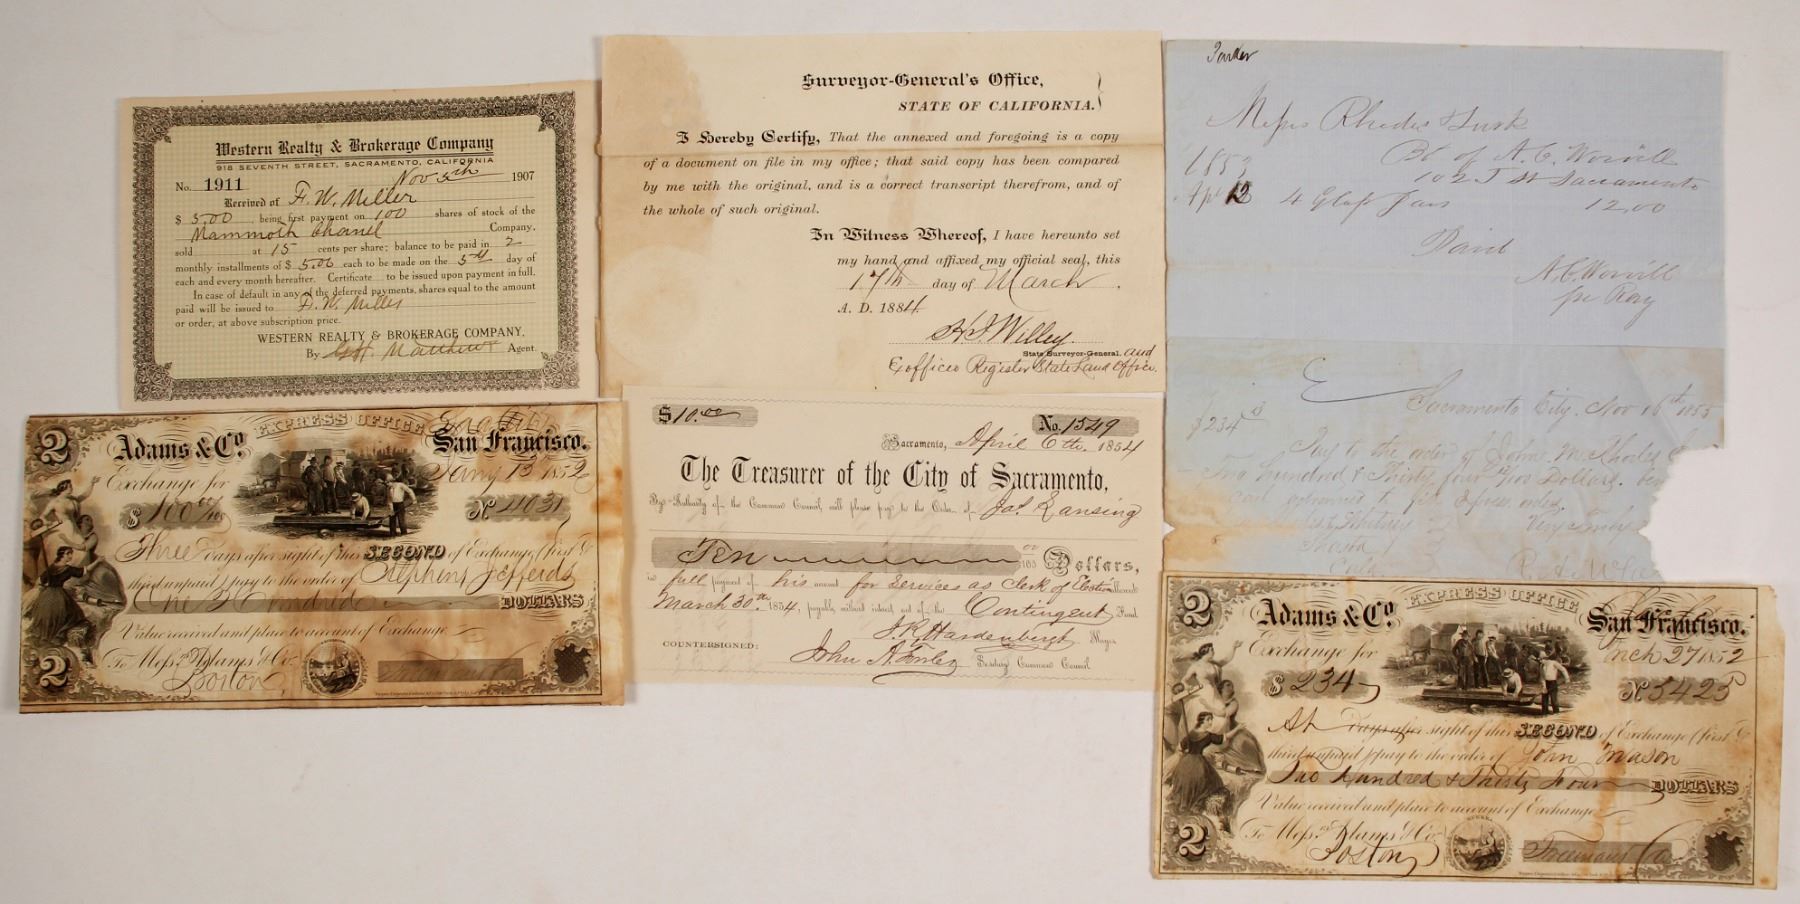 Western Realty & Brokerage Company
918 SEVENTH STREET, SACRAMENTO, CALIFORNIA
No. 1911 Nov 5th 1907
Received of F. W. Miller
$ 5.00 being first payment on 100 shares of stock of the
Mammoth Chanel Company,
sold at 15 cents per share; balance to be paid in 2
monthly installments of $ 5.00 each to be made on the 5th day of
each and every month hereafter. Certificate to be issued upon payment in full.
In case of default in any of the deferred payments, shares equal to the amount
paid will be issued to F. W. Miller
or order, at above subscription price.
WESTERN REALTY & BROKERAGE COMPANY.
By Matthews Agent.
Surveyor-General's Office,
STATE OF CALIFORNIA.
I Hereby Certify, That the annexed and foregoing is a copy
of a document on file in my office; that said copy has been compared
by me with the original, and is a correct transcript therefrom, and of
the whole of such original.
In Witness Whereof, I have hereunto set
my hand and affixed my official seal, this
17th day of March.
A. D. 1884
H. I. Willey.
State Surveyor-General. and
Exofficio Register State Land Office.
Messrs Rhodes & Lusk
1853 Bt of A. C. Worvill
102 J St Sacramento
Ap 12 4 Glass Jars 12,00
Paid
A. C. Worvill
per Ray
Sacramento City, Nov 16th 1853
$234
Pay to the order of
Two Hundred & Thirty four Dollars.
Very Truly
2
EXPRESS OFFICE
Adams & Co. San Francisco.
Exchange for Jany 13 1852
$ 100 00/100 No 4031
Three Days after sight of this SECOND of Exchange (first &
third unpaid) pay to the order of Stephens Jefferds
One Hundred DOLLARS
Value received and place to account of Exchange
To Messrs Adams & Co.
2 Boston
$10.00 No. 1549
Sacramento, April 6th 1854
The Treasurer of the City of Sacramento,
By Authority of the Common Council, will please pay to the Order of Jas Lansing
Ten 00/100 Dollars,
in full payment of his account for services as Clerk of Election allowed
March 30th 1854, payable without interest out of the Contingent Fund
J. R. Hardenbergh Mayor
COUNTERSIGNED:
John A. Secretary Common Council
2
EXPRESS OFFICE
Adams & Co. San Francisco.
Exchange for Mch 27 1852
$ 234 No 5425
At Days after sight of this SECOND of Exchange (first &
third unpaid) pay to the order of John Mason
Two Hundred & Thirty Four DOLLARS
Value received and place to account of Exchange
To Messrs Adams & Co.
2 Boston